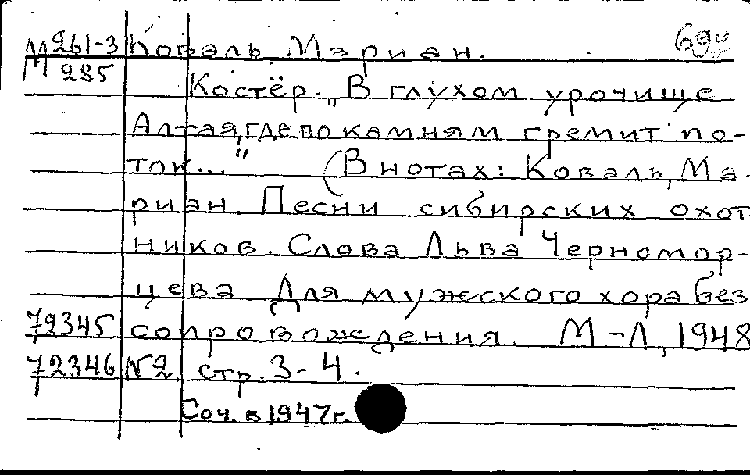 М261-3 Коваль, Мариан.
М 285
Костёр. „В глухом урочище
Алтая, где по камням гремит по-
ток..." (В нотах: Коваль, Ма-
риан. Песни сибирских охот
ников. Слова Льва Черномор-
цева. Для мужского хора без
72345 сопровождения. М-Л, 1948
72346 №2. стр. 3-4.
Соч. в 1947г.